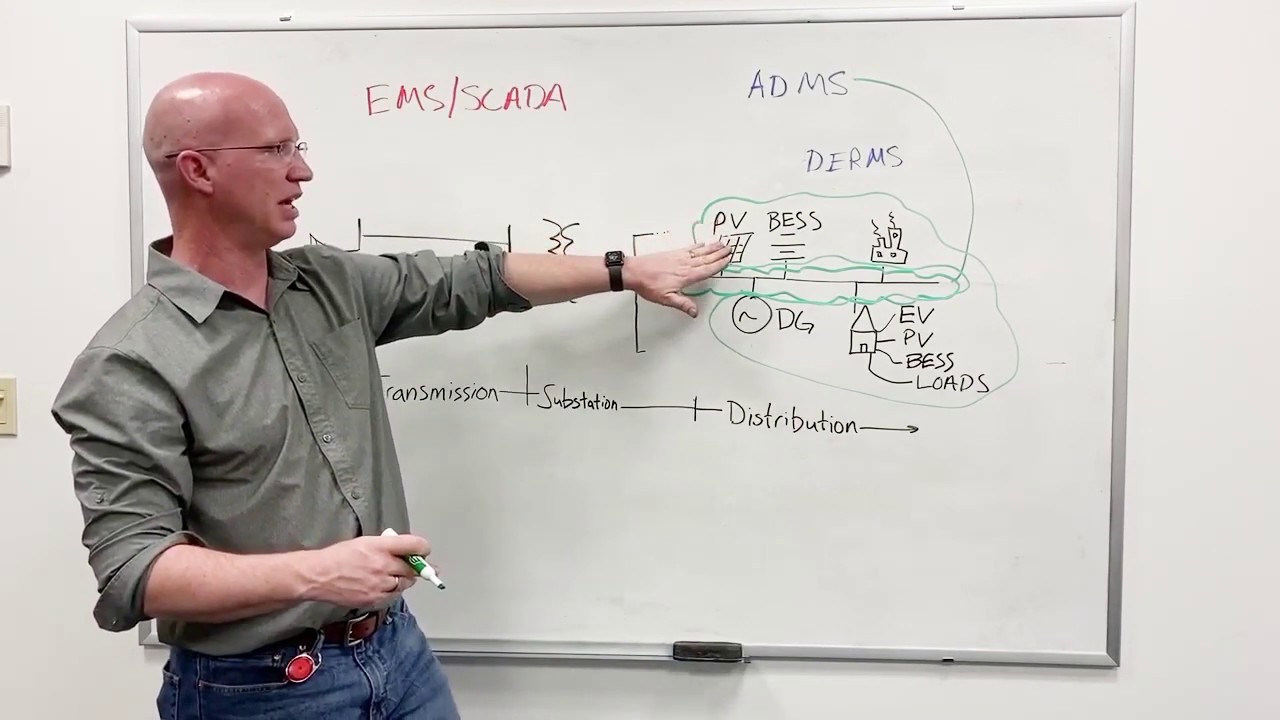 EMS/SCADA
ADMS
DERMS
PV BESS
DG
EV
PV
BESS
LOADS
Transmission
Substation
Distribution